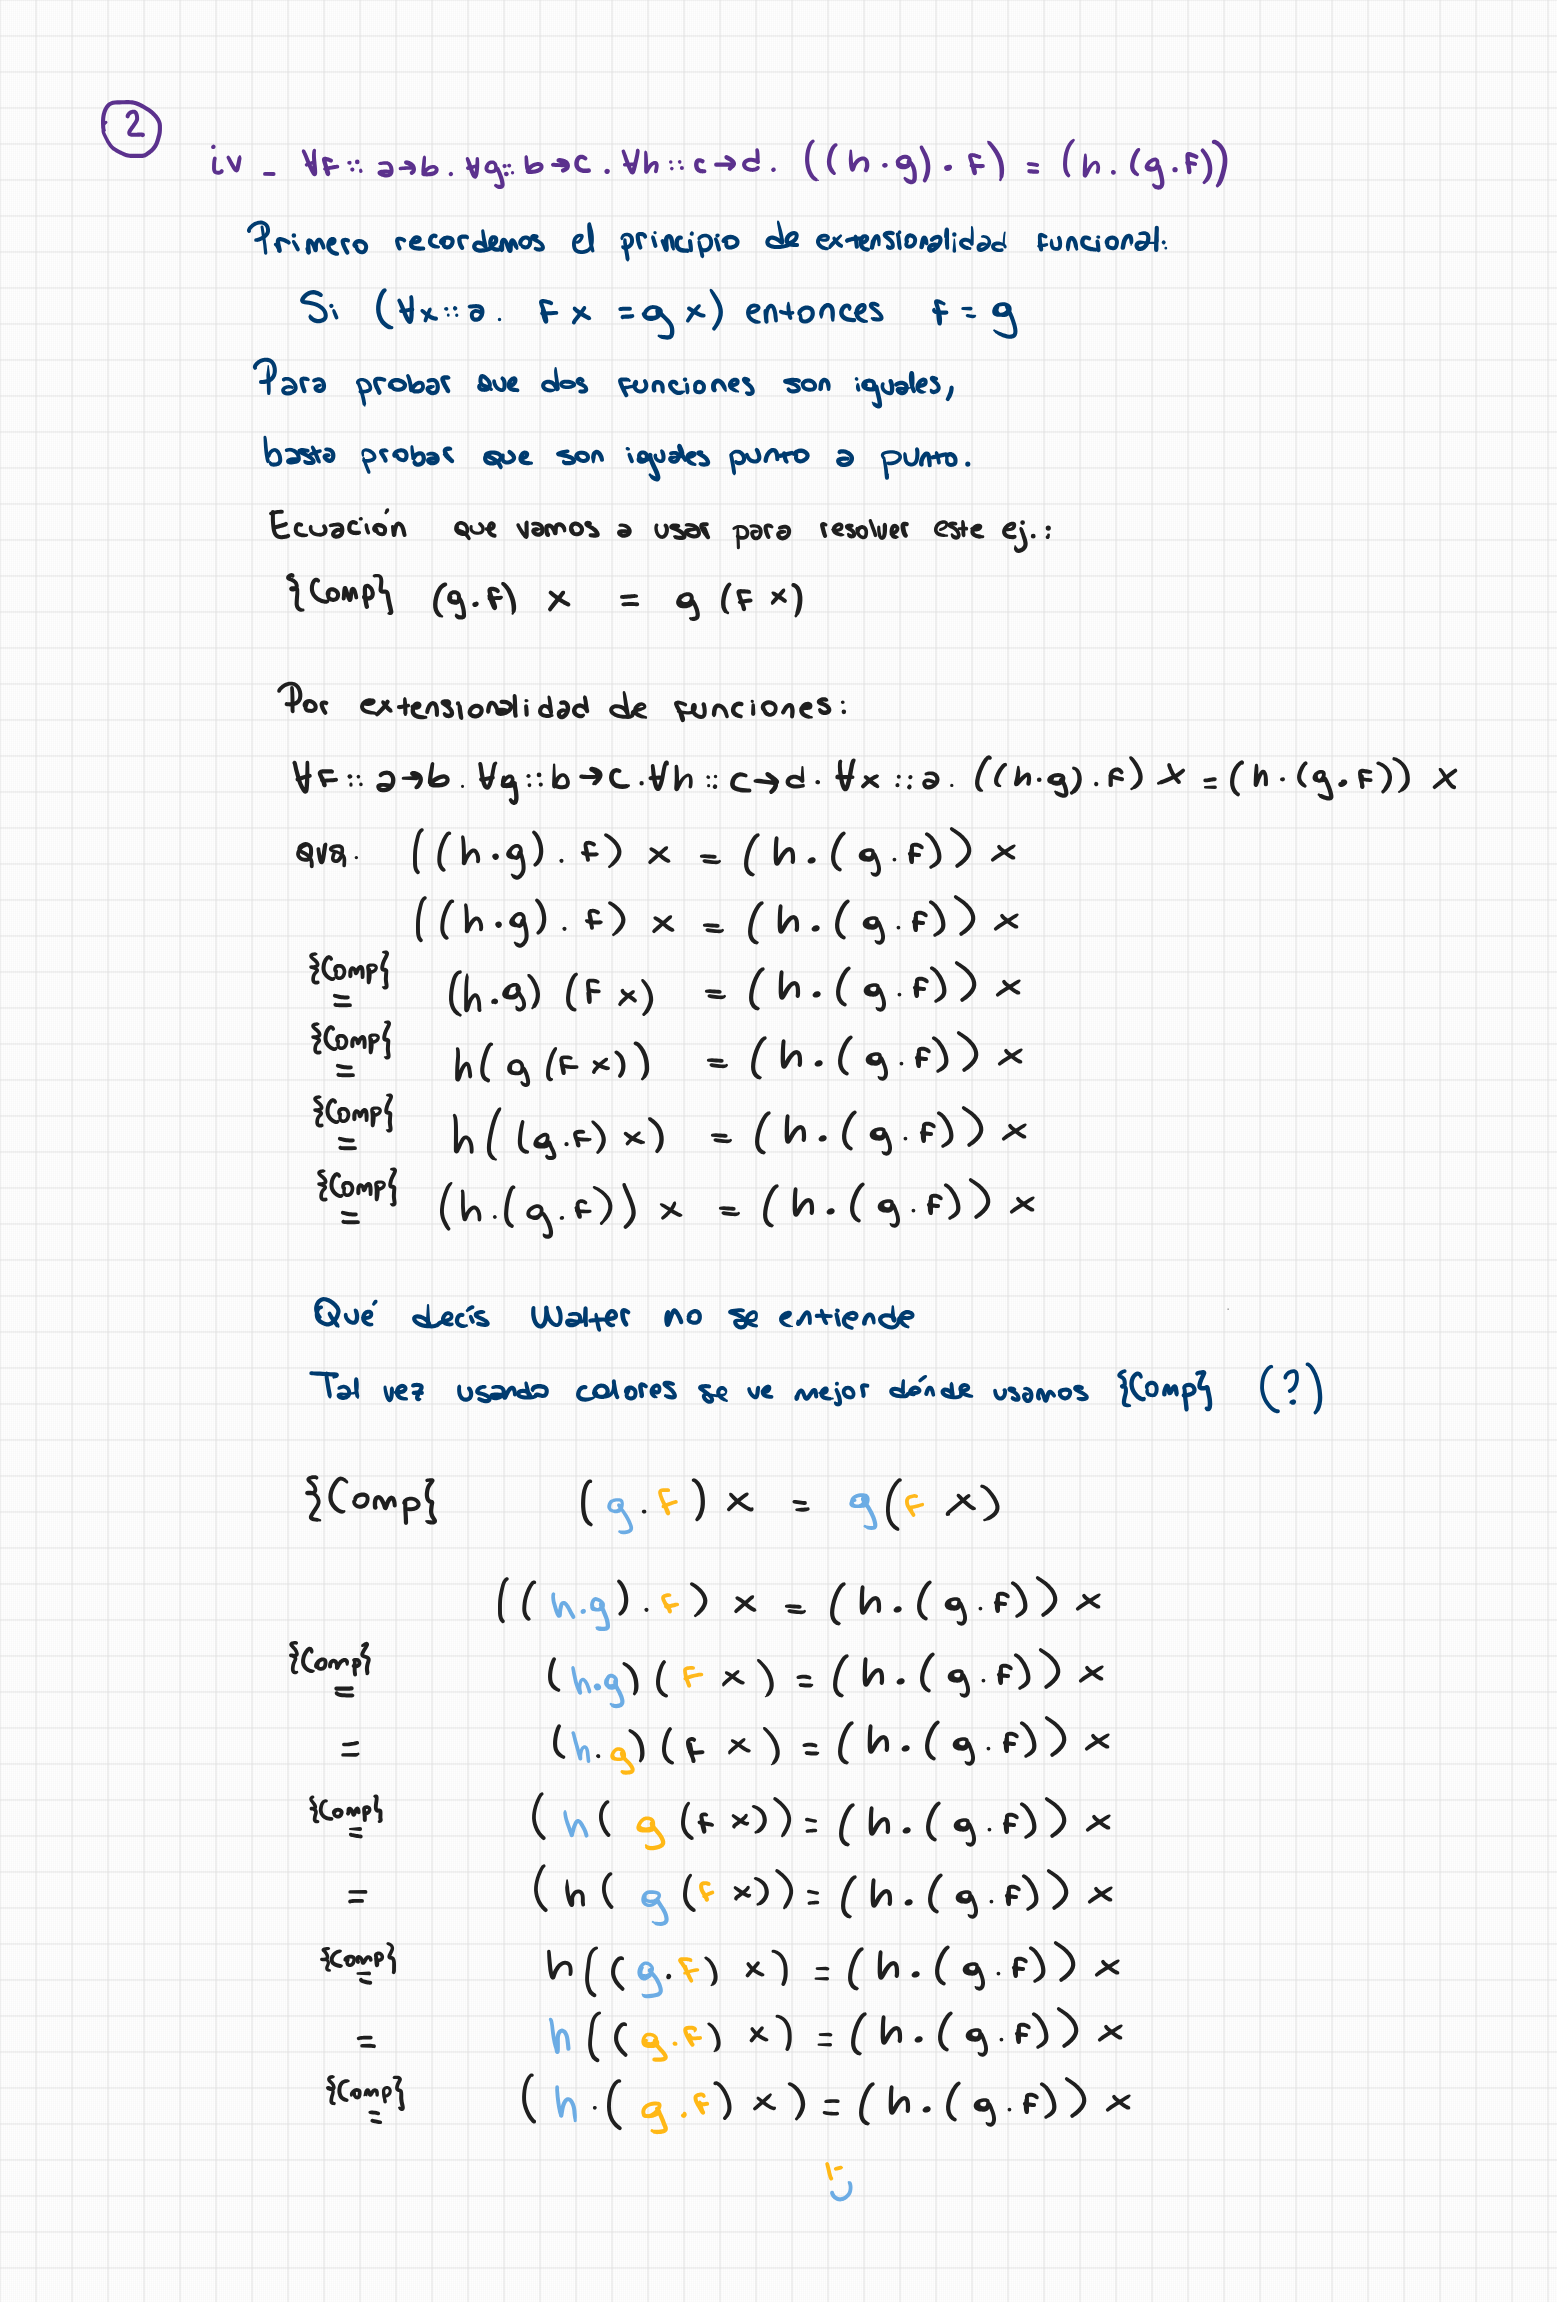 2
iv - ∀f :: a→b. ∀g :: b→c. ∀h :: c→d. ((h.g).f) = (h.(g.f))
Primero recordemos el principio de extensionalidad funcional:
Si (∀x::a. f x = g x) entonces f = g
Para probar que dos funciones son iguales,
basta probar que son iguales punto a punto.
Ecuación que vamos a usar para resolver este ej.:
{Comp} (g.f) x = g (f x)
Por extensionalidad de funciones:
∀f :: a→b. ∀g::b→c. ∀h::c→d. ∀x::a. ((h.g).f) x = (h.(g.f)) x
qvq. ((h.g).f) x = (h.(g.f)) x
((h.g).f) x = (h.(g.f)) x
{Comp} = (h.g) (f x) = (h.(g.f)) x
{Comp} = h(g (f x)) = (h.(g.f)) x
{Comp} = h((g.f) x) = (h.(g.f)) x
{Comp} = (h.(g.f)) x = (h.(g.f)) x
Qué decís Walter no se entiende
Tal vez usando colores se ve mejor dónde usamos {Comp} (?)
{Comp} (g.f) x = g(f x)
((h.g).f) x = (h.(g.f)) x
{Comp} = (h.g)(f x) = (h.(g.f)) x
= (h.g)(f x) = (h.(g.f)) x
{Comp} = (h( g (f x)) = (h.(g.f)) x
= (h( g (f x)) = (h.(g.f)) x
{Comp} = h((g.f) x) = (h.(g.f)) x
= h((g.f) x) = (h.(g.f)) x
{Comp} = (h.(g.f) x) = (h.(g.f)) x